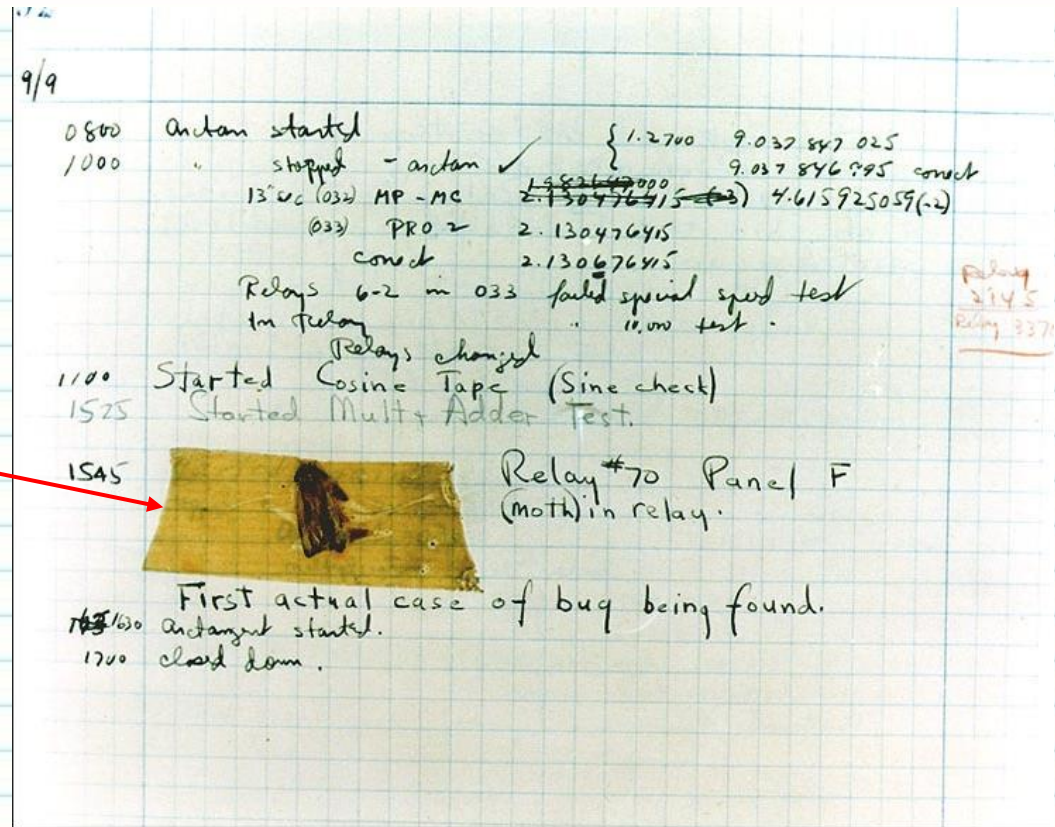 9/9
0800 Antan started { 1.2700 9.037 847 025
1000 " stopped - antan ✓ 9.037 846 995 conect
13"uc (032) MP - MC 2.130476415 (-3) 4.615925059(-2)
(033) PRO 2 2.130476415
conect 2.130676415
Relays 6-2 in 033 failed special speed test
In Relay " 10,000 test .
Relays changed
Relay
2145
Relay 3370
1100 Started Cosine Tape (Sine check)
1525 Started Mult + Adder Test.
1545 Relay #70 Panel F
(moth) in relay.
First actual case of bug being found.
1630 antangent started.
1700 closed down.